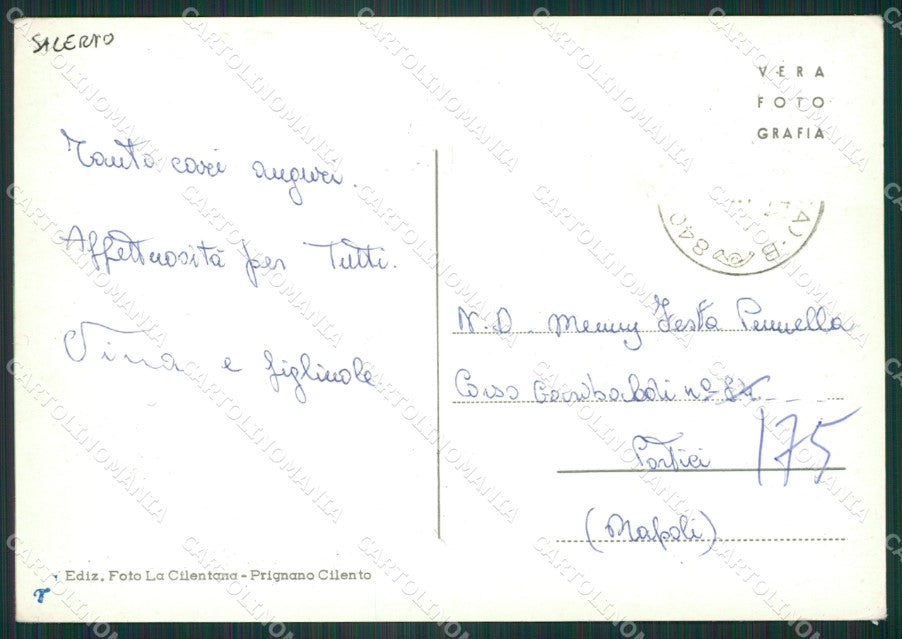 SALERNO
VERA
FOTO
GRAFIA
A)-B 840
Tanti cari auguri.
Affettuosità per Tutti.
Tina e figliuole
N.D. Menny Festa Pennella
Corso Garibaldi nº
175
Portici
(Napoli)
Ediz. Foto La Cilentana - Prignano Cilento
CARTOLINOMANIA